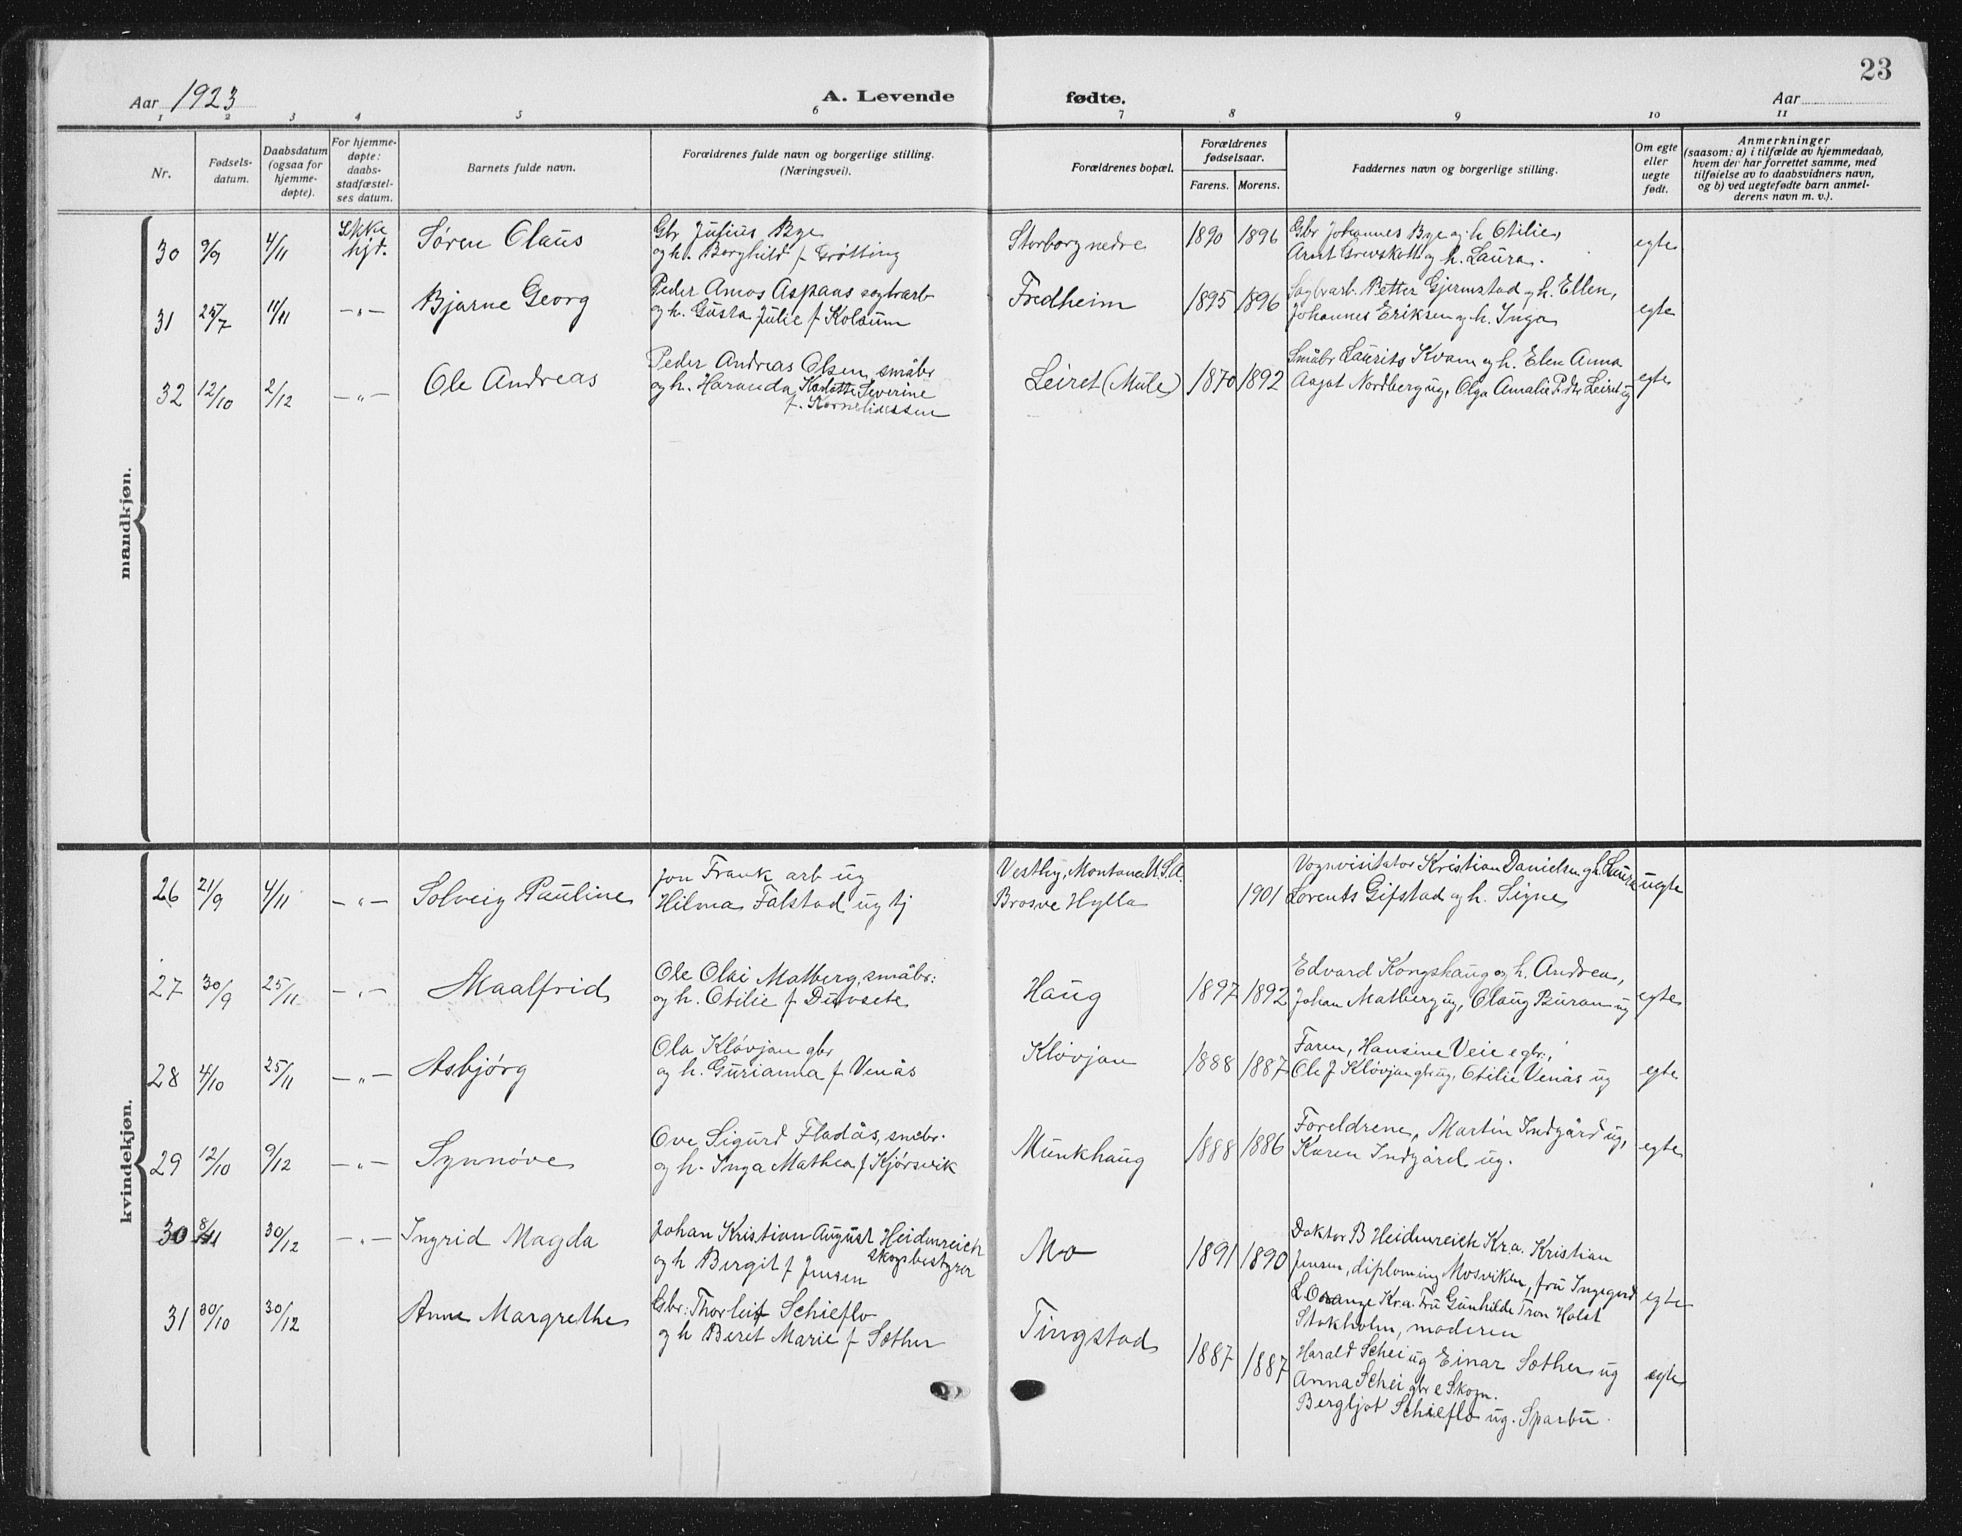 23
Aar 1923
A. Levende
fødte.
Aar
1 2 3 4 5 6 7 8 9 10 11
Nr.
Fødsels-
datum.
Daabsdatum
(ogsaa for
hjemme-
døpte).
For hjemme-
døpte:
daabs-
stadfæstel-
ses datum.
Barnets fulde navn.
Forældrenes fulde navn og borgerlige stilling.
(Næringsvei).
Forældrenes bopæl.
Forældrenes
fødselsaar.
Farens. Morens.
Faddernes navn og borgerlige stilling.
Om egte
eller
uegte
født.
Anmerkninger
(saasom: a) i tilfælde av hjemmedaab,
hvem der har forrettet samme, med
tilføielse av to daabsvidners navn,
og b) ved uegtefødte barn anmel-
derens navn m. v.).
mandkjøn.
30 9/9 4/11 Ikke
hjd. Søren Claus
Gbr Julius Bye
og h. Borghild f Grøtting
Storborg nedre 1890 1896
Gbr Johannes Bye og h Otilie,
Arnt Grevskott og h. Laura.
egte
31 25/7 11/11 -"- Bjarne Georg
Peder Amos Aspaas sagbrarb
og h. Gusta Julie f Kolsum
Fredheim 1895 1896
Sagbrarb. Petter Gjermstad og h. Ellen,
Johannes Eriksen og h. Inga
egte
32 12/10 2/12 -"- Ole Andreas
Peder Andreas Olsen, småbr
og h. Haranda Severine
f. Korneliussen
Leiret (Mule) 1870 1892
Småbr Laurits Kvam og h. Elen Anna
Aagot Nordberg ug, Olga Amalie P.dtr Leiret ug
egte
kvindekjøn.
26 21/9 4/11 -"- Solveig Pauline
Jon Frank arb ug
Hilma Falstad ug tj
Vestby, Montana U.S.A.
Brosve Hylla
1901
Vognvisitatør Kristian Danielsen og h. Laura
Lorents Gifstad og h. Signe
uegte
27 30/9 25/11 -"- Maalfrid
Ole Olai Matberg, småbr:
og h. Otilie f Duvsete
Haug 1897 1892
Edvard Kongshaug og h. Andrea,
Johan Matberg ug, Olaug Buran ug
egte
28 4/10 25/11 -"- Asbjørg
Ola Kløvjan gbr
og h. Gurianna f Venås
Kløvjan 1888 1887
Faren, Hansine Veie e gbr.,
Ole J Kløvjan gbr ug, Otilie Venås ug
egte
29 12/10 9/12 -"- Synnøve
Ove Sigurd Fladås, småbr.
og h. Inga Mathea f Kjørsvik
Munkhaug 1888 1886
Foreldrene, Martin Indgård ug,
Karen Indgård ug.
egte
30 8/11 30/12 -"- Ingrid Magda
Johan Kristian August Heidenreich
skogbestyrer
og h Bergit f Jensen
Mo 1891 1890
Doktor B Heidenreich Kra. Kristian
Jensen, diploming Mosviken, fru Ingegerd
L.Orange Kra. Fru Gunhilde Tron Holst
Stokholm, moderen
egte
31 30/10 30/12 Anne Margrethe
Gbr: Thorleif Schieflo
og h Beret Marie f Sæther
Tingstad 1887 1887
Harald Schei ug Einar Sæther ug
Anna Schei gbr e Skogn.
Bergljot Schieflo ug. Sparbu.
egte